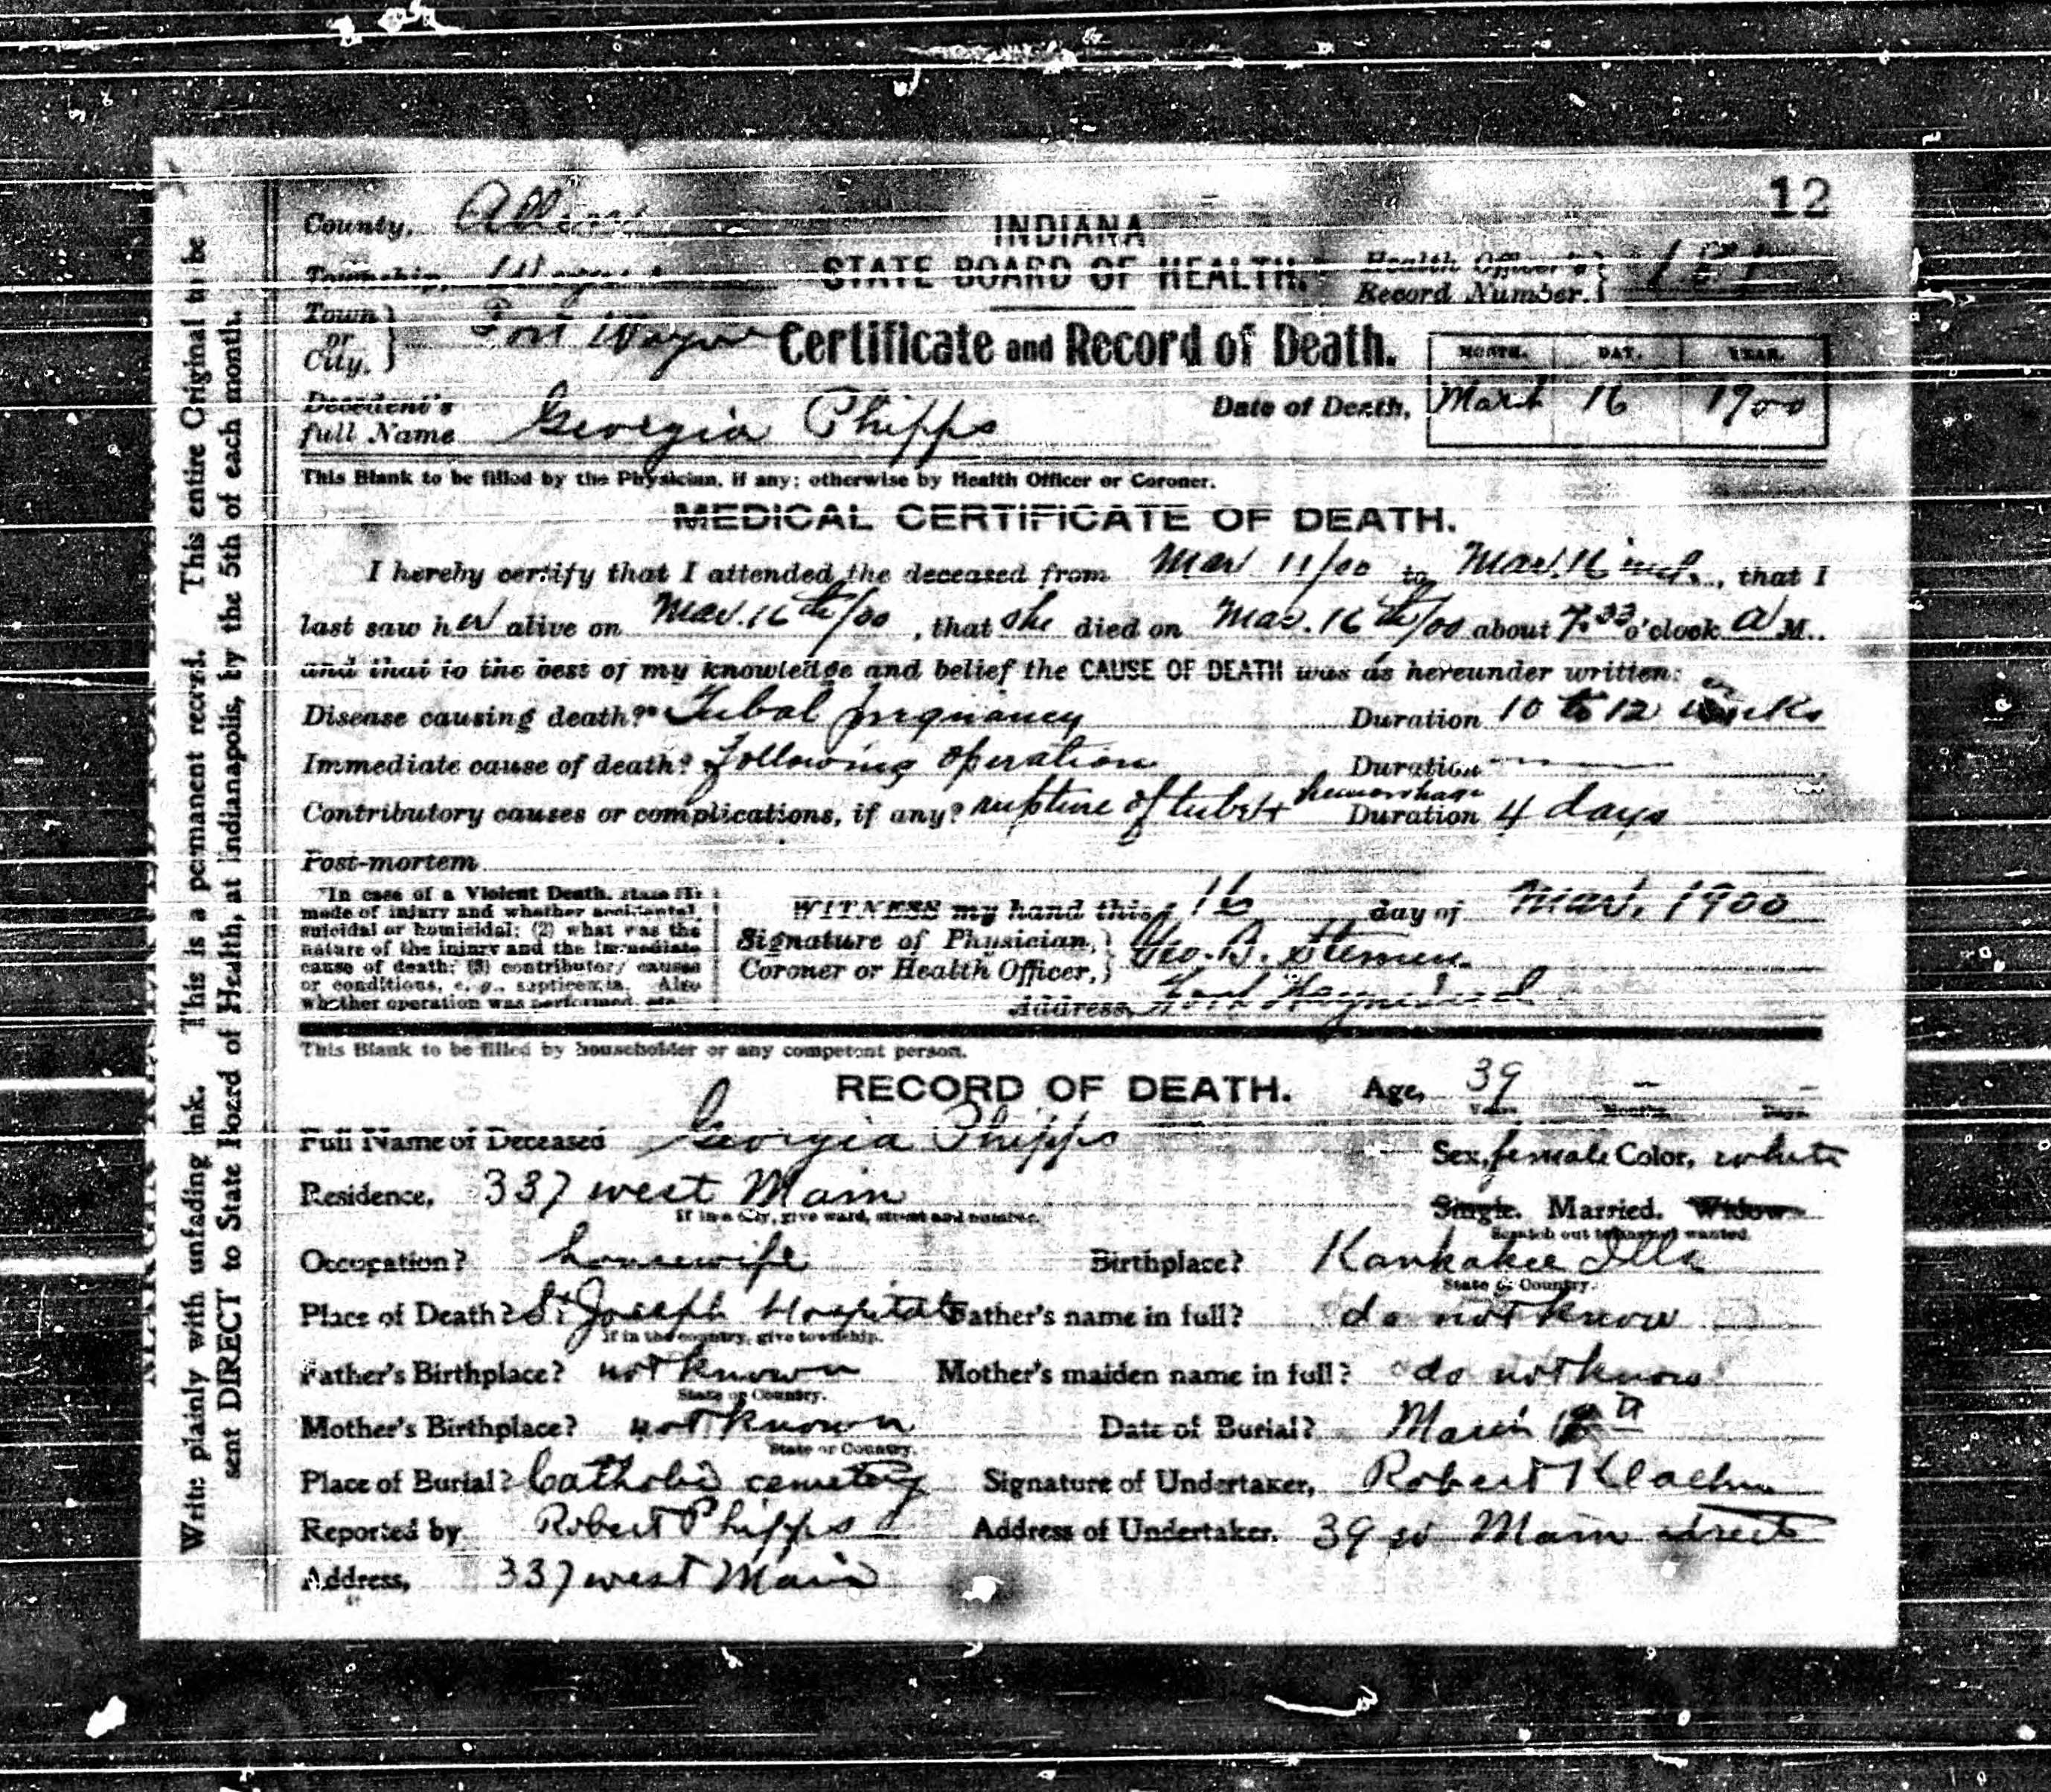 12
County, Allen
INDIANA
Township, Wayne
STATE BOARD OF HEALTH.
Health Officer's Record Number.
Town or City. Fort Wayne
Certificate and Record of Death.
MONTH. DAY. YEAR.
Decedent's full Name Georgia Phipps
Date of Death, March 16 1900
This Blank to be filled by the Physician, if any; otherwise by Health Officer or Coroner.
MEDICAL CERTIFICATE OF DEATH.
I hereby certify that I attended the deceased from Mar 11/00 to Mar. 16 , that I
last saw her alive on Mar. 16th/00 , that she died on Mar. 16th/00 about 7.33 o'clock A M.
and that to the best of my knowledge and belief the CAUSE OF DEATH was as hereunder written:
Disease causing death?* Tubal pregnancy Duration 10 to 12 weeks
Immediate cause of death? Following operation Duration
Contributory causes or complications, if any? rupture of tube + hemorrhage Duration 4 days
Post-mortem
*In case of a Violent Death, state (1)
mode of injury and whether accidental,
suicidal or homicidal; (2) what was the
nature of the injury and the immediate
cause of death; (3) contributory causes
or conditions, e. g., septicemia. Also
whether operation was performed, etc.
WITNESS my hand this 16 day of Mar. 1900
Signature of Physician, Coroner or Health Officer, Geo. B. Stemen
Address, Fort Wayne Ind
This Blank to be filled by householder or any competent person.
RECORD OF DEATH. Age, 39 - -
Years. Months. Days.
Full Name of Deceased Georgia Phipps
Sex, female Color, white
Residence, 337 west Main
If in a city, give ward, street and number.
Single. Married. Widow
Scratch out terms not wanted.
Occupation? housewife Birthplace? Kankakee Ills
State or Country.
Place of Death? St Joseph Hospital Father's name in full? do not know
If in the country, give township.
Father's Birthplace? not known Mother's maiden name in full? do not know
State or Country.
Mother's Birthplace? not known Date of Burial? March
State or Country.
Place of Burial? Catholic cemetery Signature of Undertaker, Robert Klaehn
Reported by Robert Phipps Address of Undertaker. 39 w Main street
Address, 337 west Main
Write plainly with unfading ink. This is a permanent record. This entire Original to be
sent DIRECT to State Board of Health, at Indianapolis, by the 5th of each month.